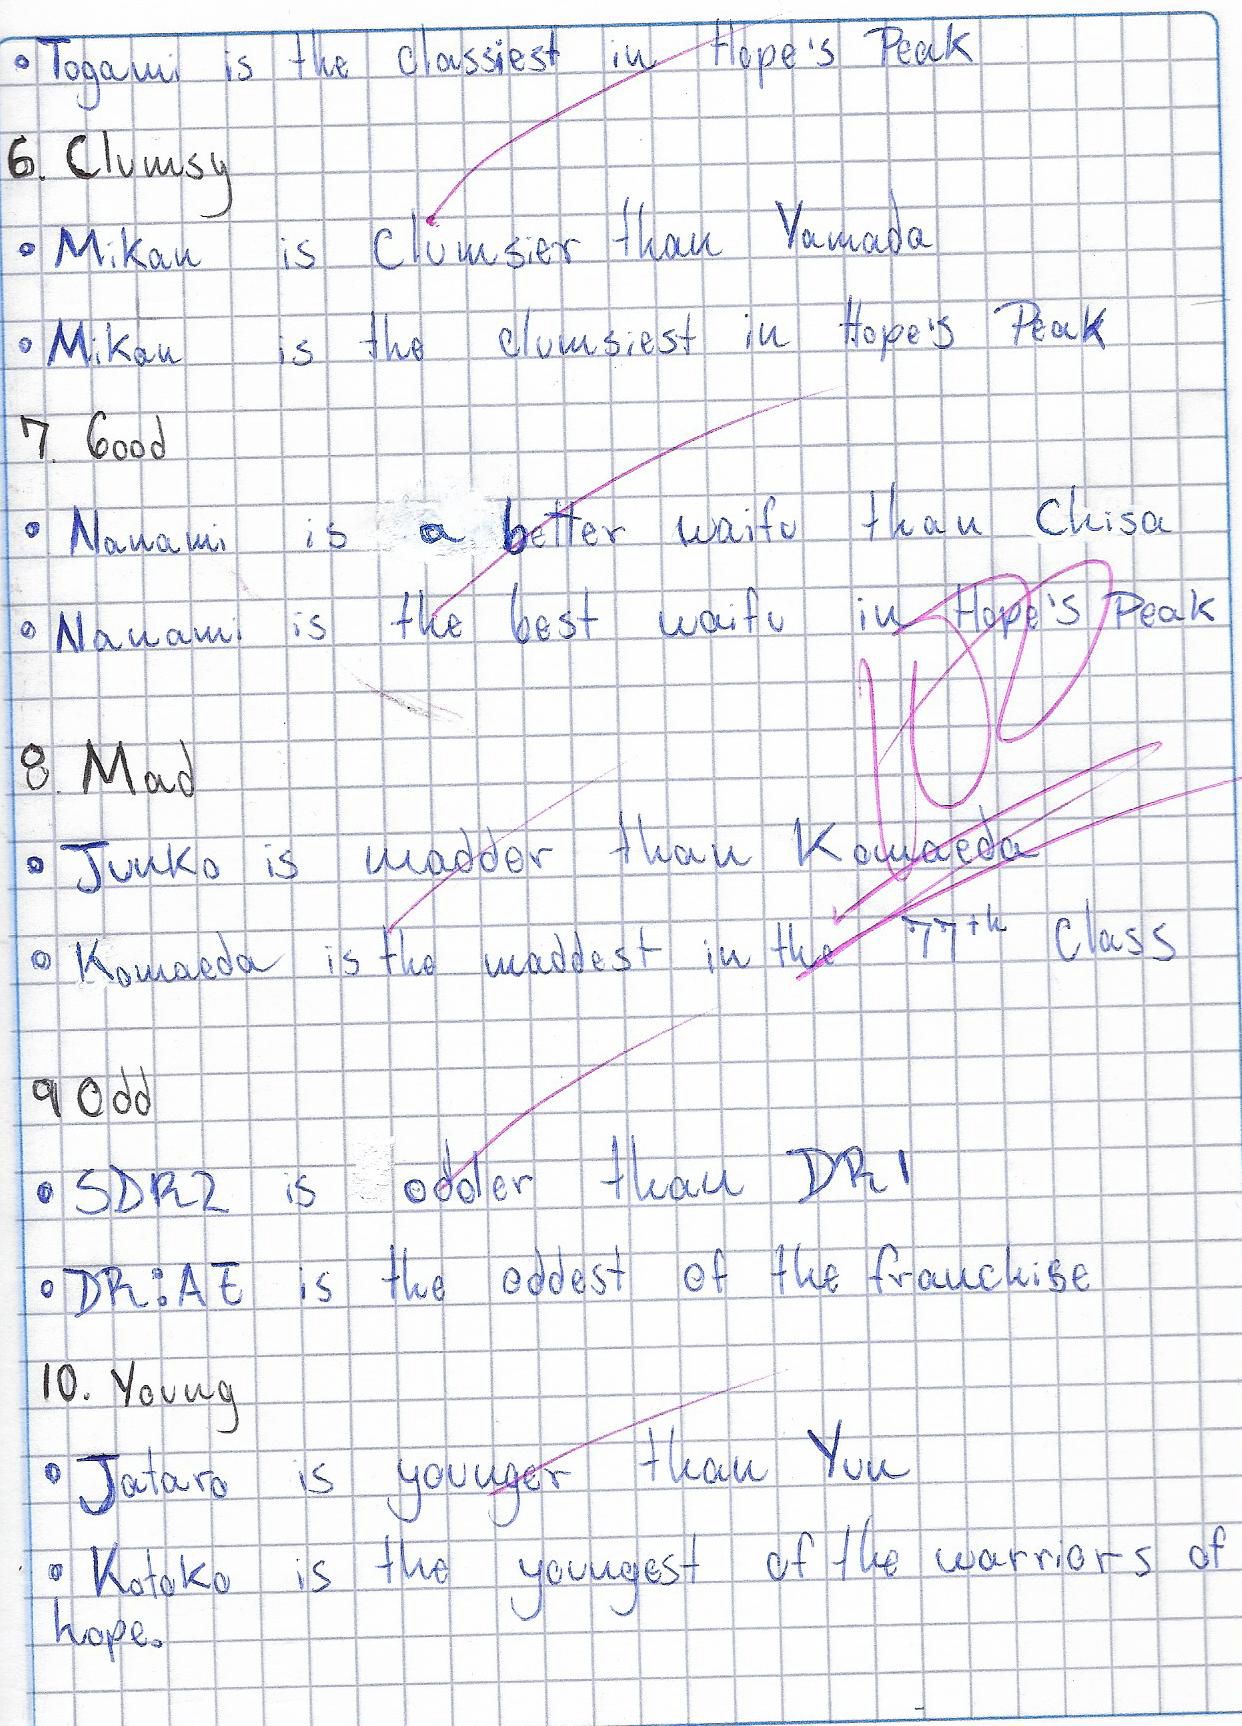 • Togami is the classiest in Hope's Peak
6. Clumsy
• Mikan is Clumsier than Yamada
• Mikan is the clumsiest in Hope's Peak
7. Good
• Nanami is a better waifu than Chisa
• Nanami is the best waifu in Hope's Peak
100
8. Mad
• Junko is madder than Komaeda
• Komaeda is the maddest in the 77th Class
9 Odd
• SDR2 is odder than DR1
• DR:AE is the oddest of the franchise
10. Young
• Jataro is younger than Yuu
• Kotoko is the youngest of the warriors of
hope.